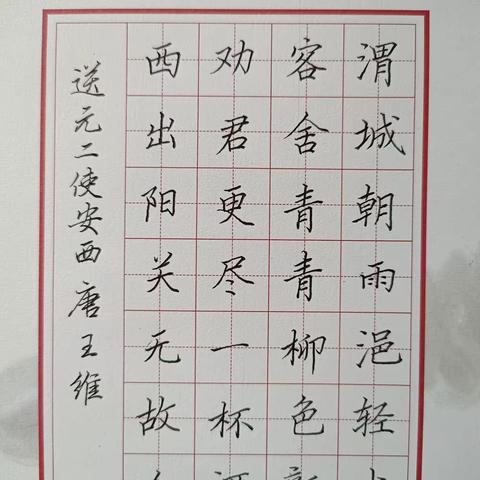 渭城朝雨浥轻
客舍青青柳色
劝君更尽一杯
西出阳关无故
送元二使安西 唐 王维